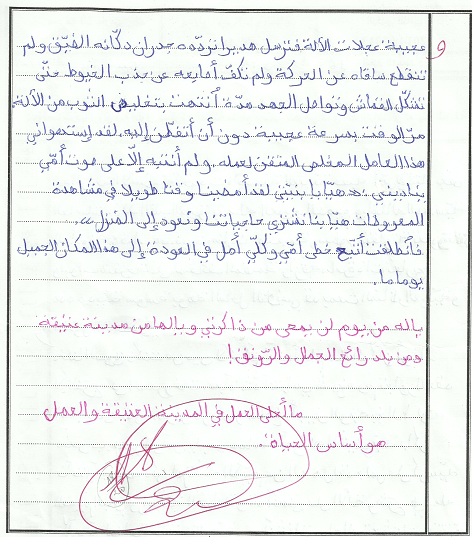 عجيبة عجلات الآلة فترسل هديرا تردّده جدران دكّانه الضّيّق ولم
تنقطع ساقاه عن الحركة ولم تكفّ أصابعه عن جذب الخيوط حتّى
تشكّل القماش وتواصل الجهد مدّة ٱنتهت بتخليص الثوب من الآلة.
مرّ الوقت بسرعة عجيبة دون أن أتفطّن إليه. لقد إستهواني
هذا العامل المخلص المتقن لعمله. ولم أنتبه إلّا على صوت أمّي
يناديني : « هيّا يا بنيّتي لقد أمضينا وقتا طويلا في مشاهدة
المعروضات هيّا بنا نشتري حاجياتنا ونعود إلى المنزل »
فٱنطلقت أتتبّع خطى أمّي وكلّي أمل في العودة إلى هذا المكان الجميل
يوما ما.
ياله من يوم لن يمحى من ذاكرتي ويالها من مدينة عتيقة
ومن بلد رائع الجمال والرّونق!
ما أحلى العمل في المدينة العتيقة والعمل
هو أساس الحياة.